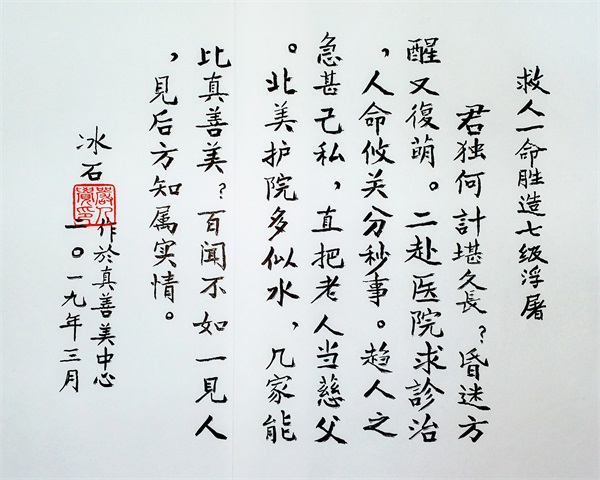 救人一命胜造七级浮屠
君独何計堪久長？昏迷方
醒又復萌。二赴医院求診治
，人命攸关分秒事。趋人之
急甚己私，直把老人当慈父
。北美护院多似水，几家能
比真善美？百闻不如一見人
，見后方知属实情。
冰石
作於真善美中心
二〇一九年三月